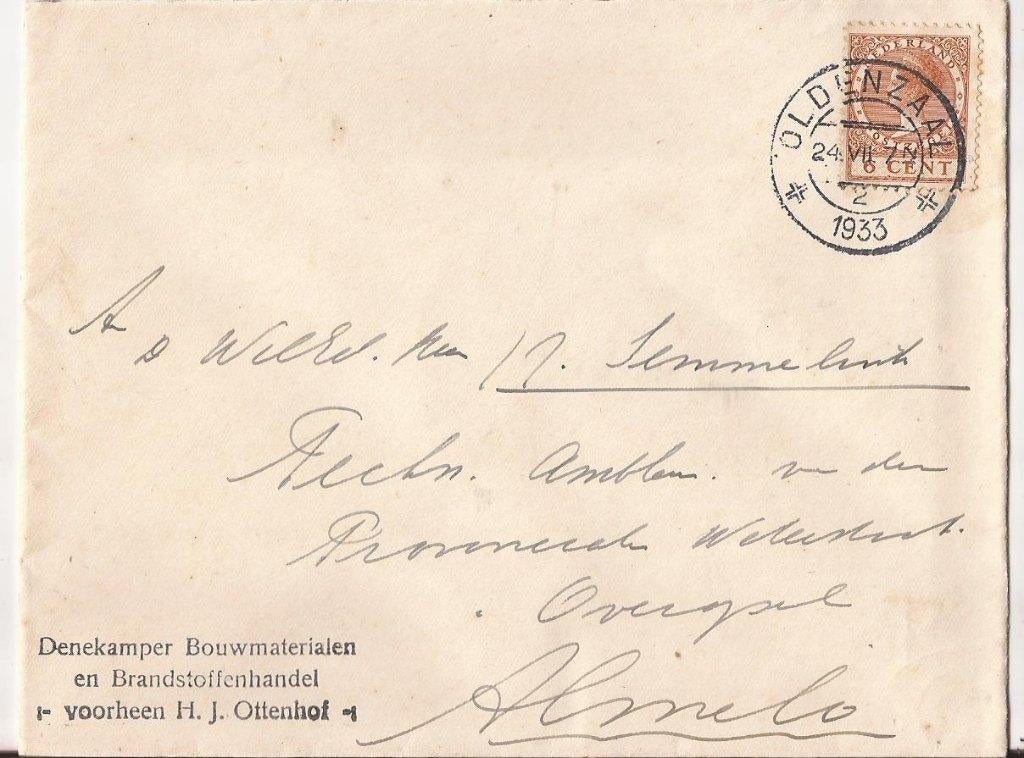 NEDERLAND
6 CENT
OLDENZAAL
24.VII
2
1933
A
d WelEd. Heer J. Semmelink
Techn. Ambten. van den
Provincialen Waterstaat.
Overijsel
Almelo
Denekamper Bouwmaterialen
en Brandstoffenhandel
voorheen H. J. Ottenhof